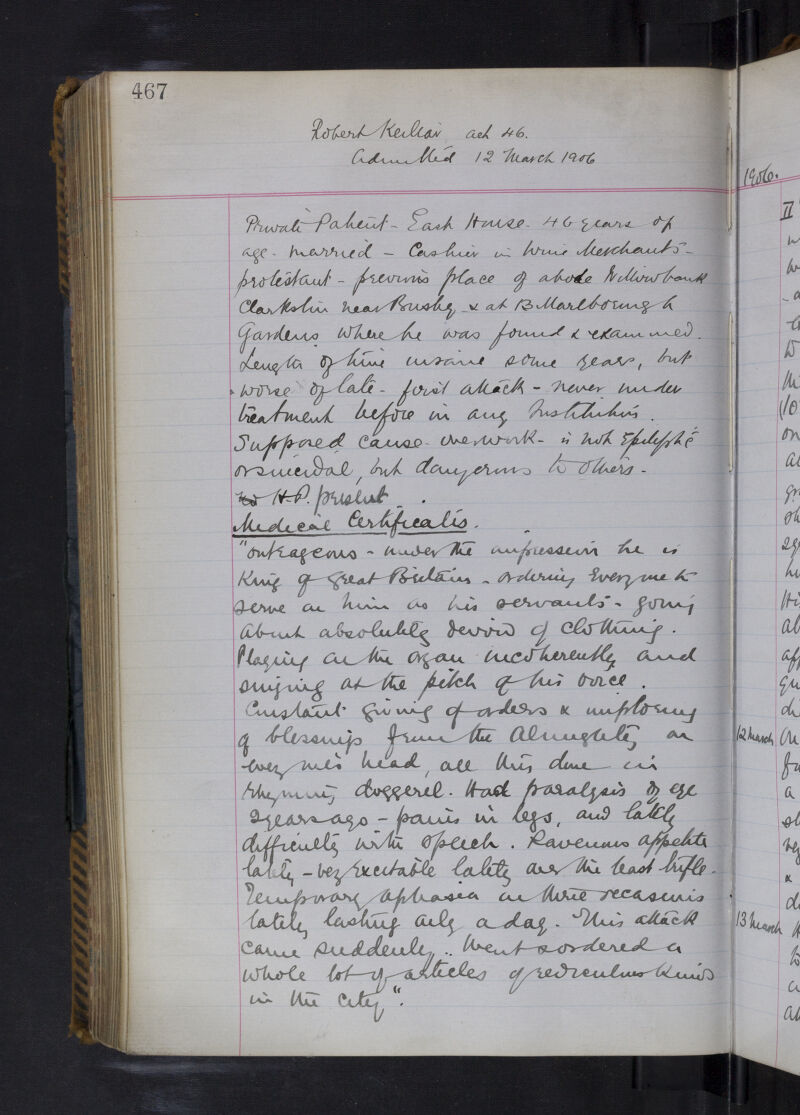 467
Robert Keillar aet 46.
Admitted 12 March 1906
Private Patient - East House. 46 years of
age - married - Cashier in Wine Merchants -
protestant - previous place of abode Willowbank
Clarkston near Busby & at 13 Marlborough
Gardens where he was found & examined.
Length of time insane some years, but
worse of late - first attack - never under
treatment before in any Institution.
Supposed cause - overwork - is not Epileptic
or suicidal, but dangerous to others -
H.P. present.
Medical Certificates.
"outrageous - under the impression he is
King of Great Britain - ordering Everyone to
serve on him as his servants - going
about absolutely devoid of clothing.
Playing on the organ incoherently and
singing at the pitch of his voice.
Constant giving of orders & imploring
of blessings from the Almighty on
every one's head, all this done in
rhyming doggerel. Had paralysis of eye
2 years ago - pains in legs, and lately
difficulty with speech. Ravenous appetite
lately - very Excitable lately over the least trifle.
Temporary aphasia on three occasions
lately lasting only a day. This attack
came suddenly.. Went & ordered a
whole lot of articles of rediculous kinds
in the city".
1906.
II
12 March
13 March